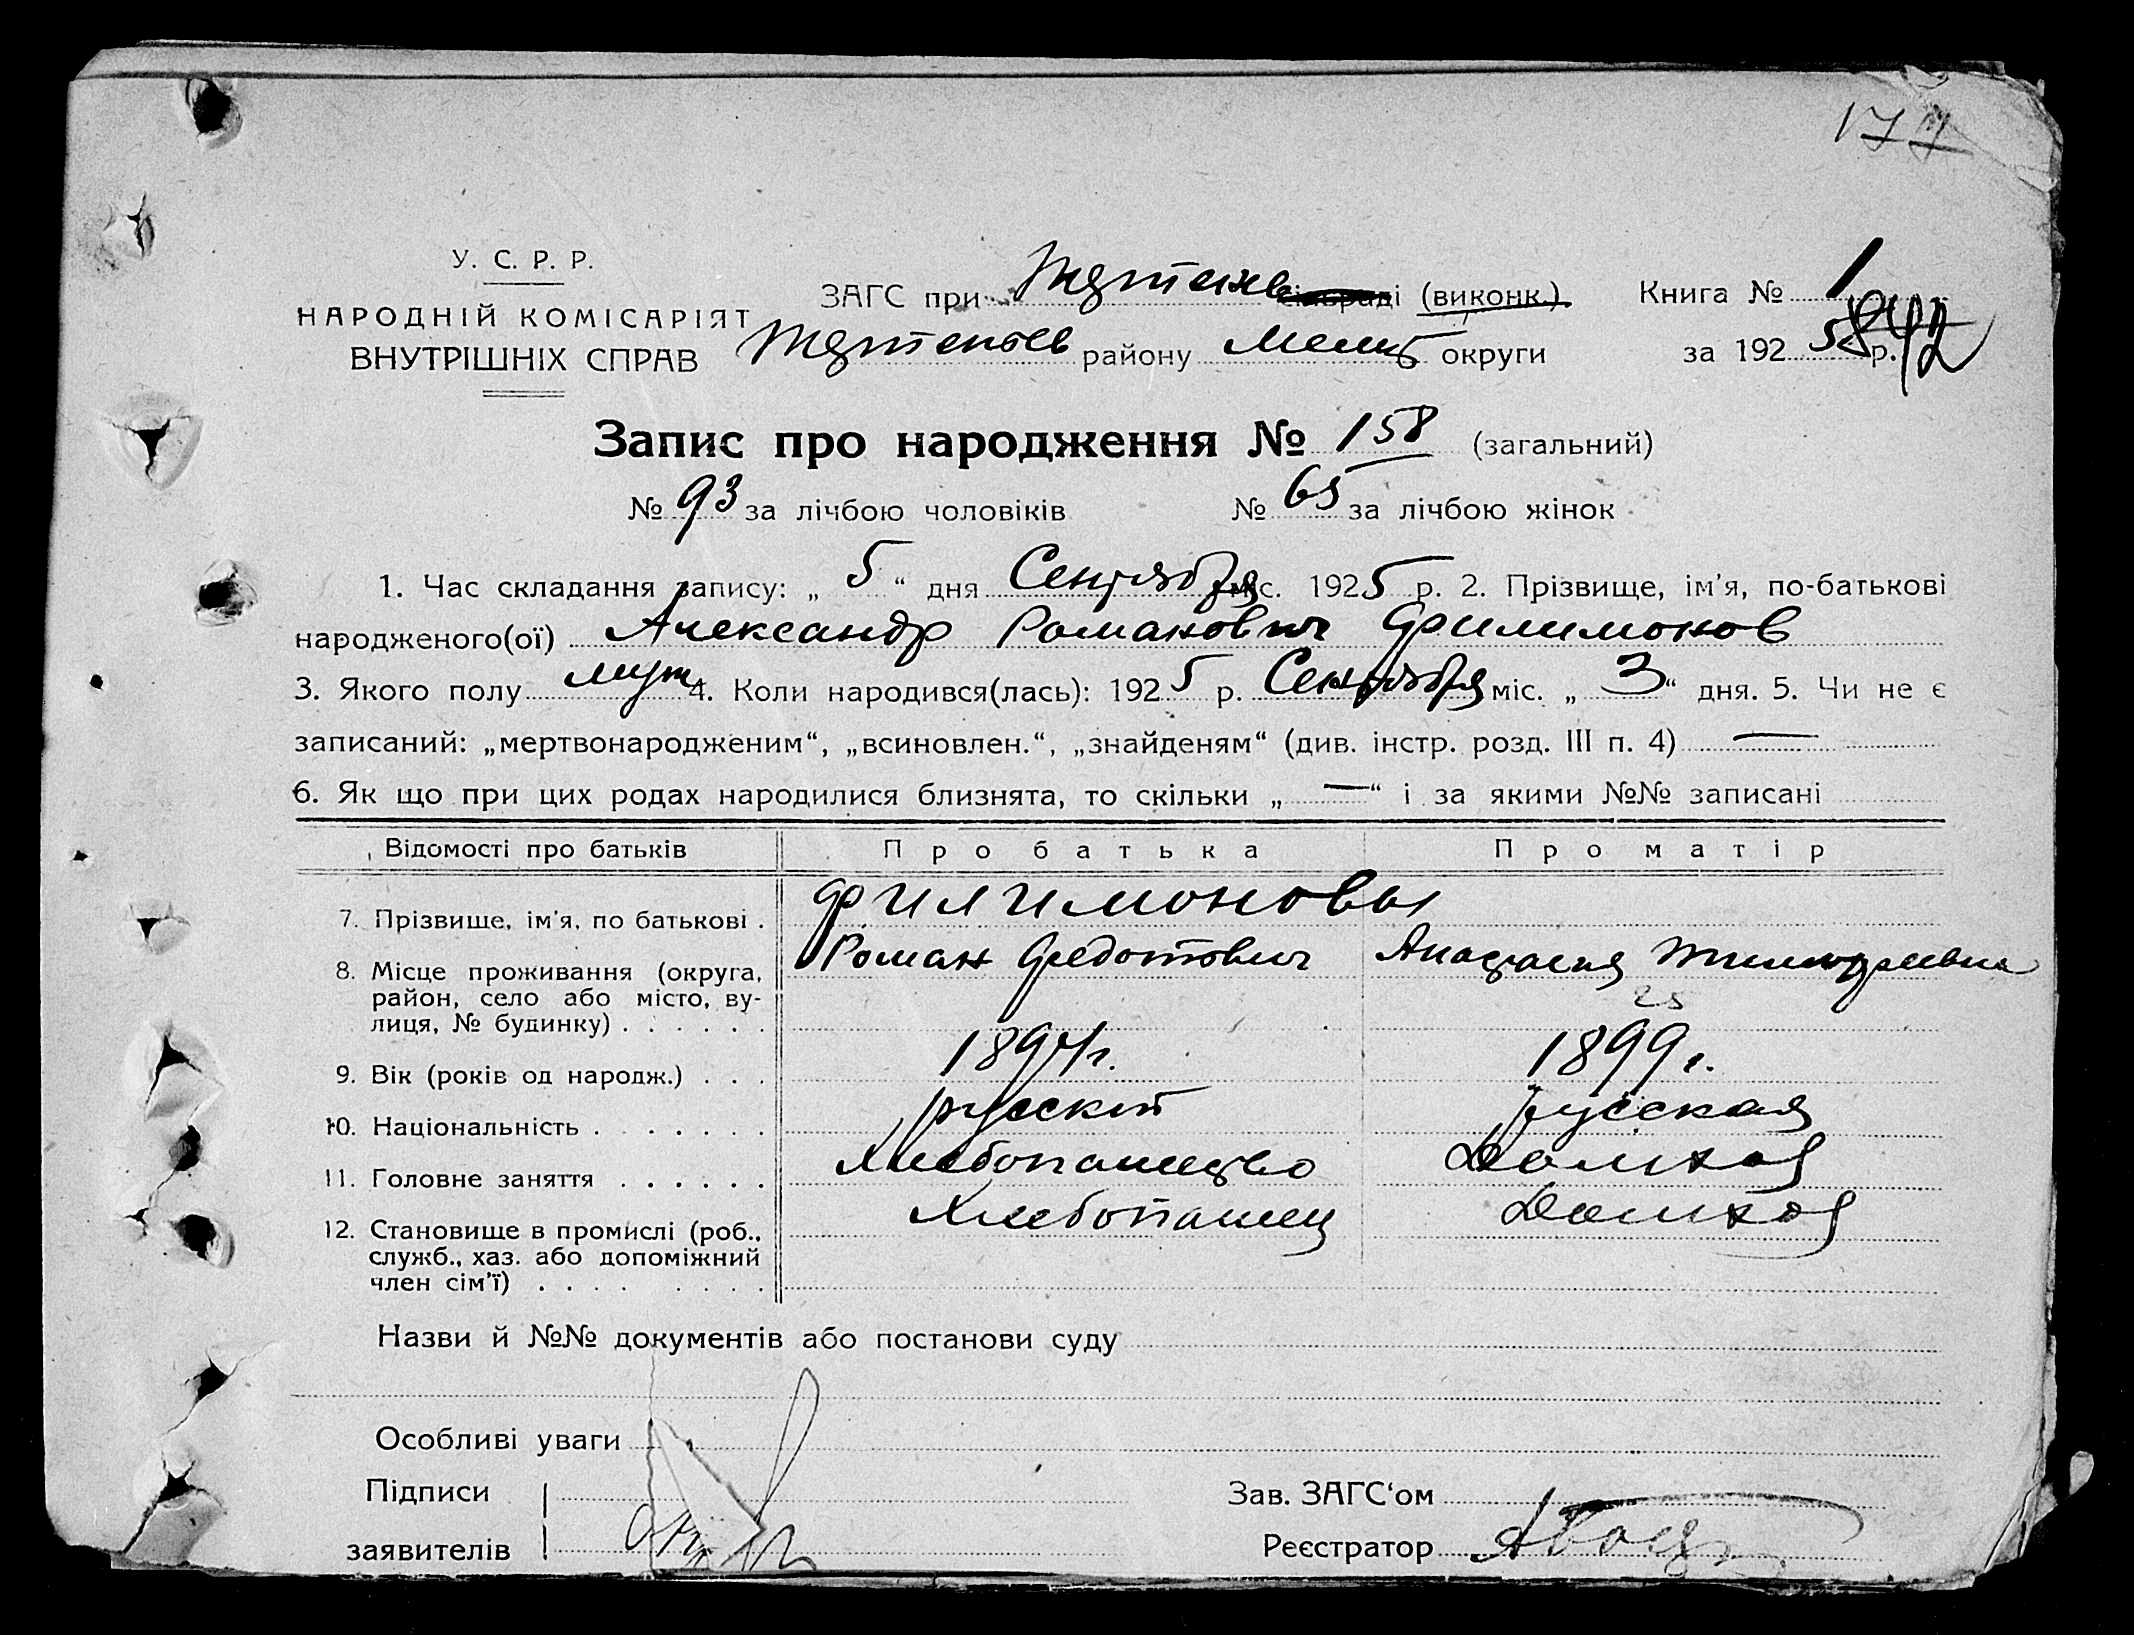 177
У. С. Р. Р.
НАРОДНІЙ КОМІСАРІЯТ
ВНУТРІШНІХ СПРАВ
ЗАГС при (виконк.)
району Мелит округи
Книга № 1
за 1925 р. 42
Запис про народження № 158 (загальний)
№ 93 за лічбою чоловіків № 65 за лічбою жінок
1. Час складання запису: „ 5 “ дня Сентября міс. 1925 р. 2. Прізвище, ім'я, по-батькові
народженого(ої) Александр Романович Филимонов
3. Якого полу муж 4. Коли народився(лась): 1925 р. Сентября міс. „ 3 “ дня. 5. Чи не є
записаний: „мертвонародженим“, „всиновлен.“, „знайденям“ (див. інстр. розд. III п. 4) —
6. Як що при цих родах народилися близнята, то скільки „ — “ і за якими №№ записані
Відомості про батьків Про батька Про матір
7. Прізвище, ім'я, по батькові . Филимоновы
Роман Федотович Анастасия Тимофеевна
8. Місце проживання (округа,
район, село або місто, ву-
лиця, № будинку) . . . . . .
25
9. Вік (років од народж.) . . . 1894 г. 1899 г.
10. Національність . . . . . . . русский русская
11. Головне заняття . . . . . . Хлебопашество Домхоз
12. Становище в промислі (роб., Хлебопашец Домхоз
служб., хаз. або допоміжний
член сім'ї) . . . . . . . .
Назви й №№ документів або постанови суду
Особливі уваги
Підписи
заявителів
Зав. ЗАГС'ом
Реєстратор